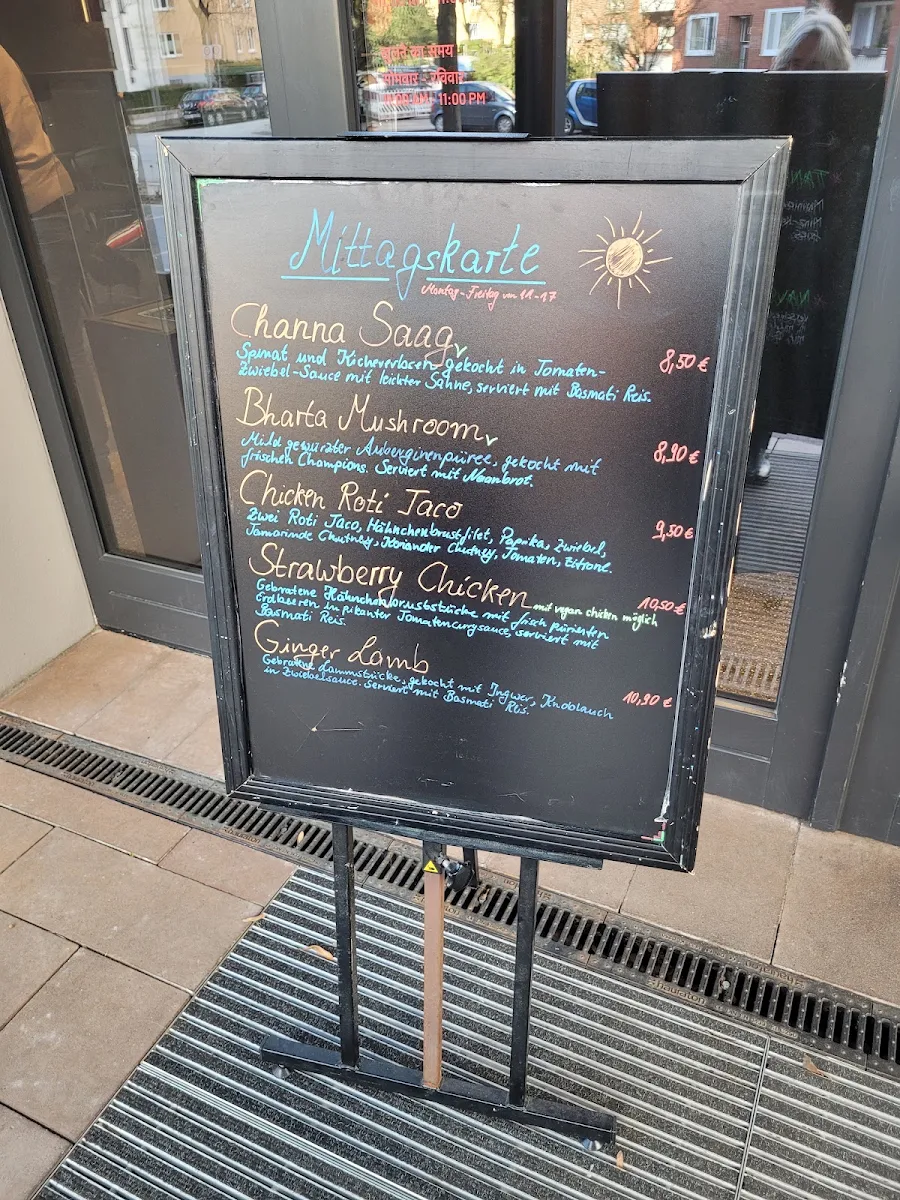 खुलने का समय
सोमवार - रविवार
11:00 PM
Mittagskarte
Montag - Freitag von 11-17
Channa Saag v
Spinat und Kichererbsen, gekocht in Tomaten-
Zwiebel-Sauce mit leichter Sahne, serviert mit Basmati Reis.
8,50 €
Bharta Mushroom v
Mild gewürzter Auberginenpüree, gekocht mit
frischen Champions. Serviert mit Naanbrot.
8,90 €
Chicken Roti Taco
Zwei Roti Taco, Hähnchenbrustfilet, Paprika, Zwiebel,
Tamarinde Chutney, Koriander Chutney, Tomaten, Zitrone.
9,50 €
Strawberry Chicken mit vegan chicken möglich
Gebratene Hähnchenbruststücke mit frisch pürierten
Erdbeeren in pikanter Tomatencurrysauce, serviert mit
Basmati Reis.
10,50 €
Ginger Lamb
Gebratene Lammstücke, gekocht mit Ingwer, Knoblauch
in Zwiebelsauce. Serviert mit Basmati Reis.
10,90 €